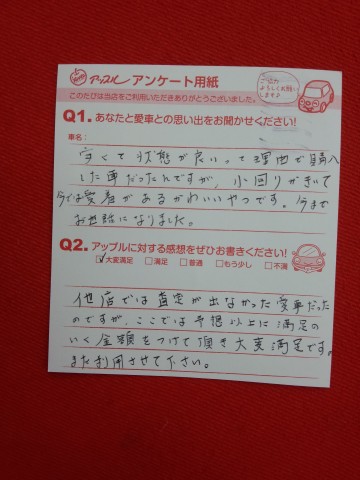 アップル アンケート用紙
ご協力
よろしくお願い
します♪
このたびは当店をご利用いただきありがとうございました。
Q1. あなたと愛車との思い出をお聞かせください!
車名:
安くて状態が良いって理由で購入
した車だったんですが、小回りがきいて
今では愛着があるかわいいやつです。今まで
お世話になりました。
Q2. アップルに対する感想をぜひお書きください!
大変満足 満足 普通 もう少し 不満
他店では査定が出なかった愛車だった
のですが、ここでは予想以上に満足の
いく金額をつけて頂き大変満足です。
また利用させて下さい。